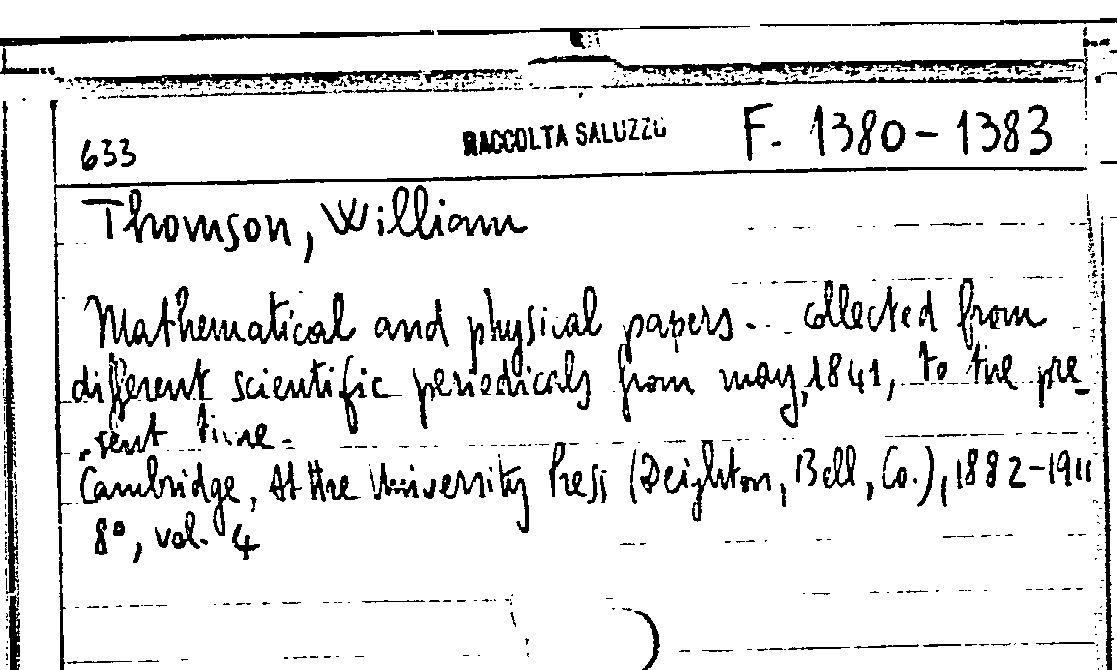 633 RACCOLTA SALUZZO F. 1380-1383
Thomson, William
Mathematical and physical papers. collected from
different scientific periodicals from may, 1841, to the pre
sent time.
Cambridge, At the University Press (Deighton, Bell, Co.), 1882-1911
8°, vol. 4